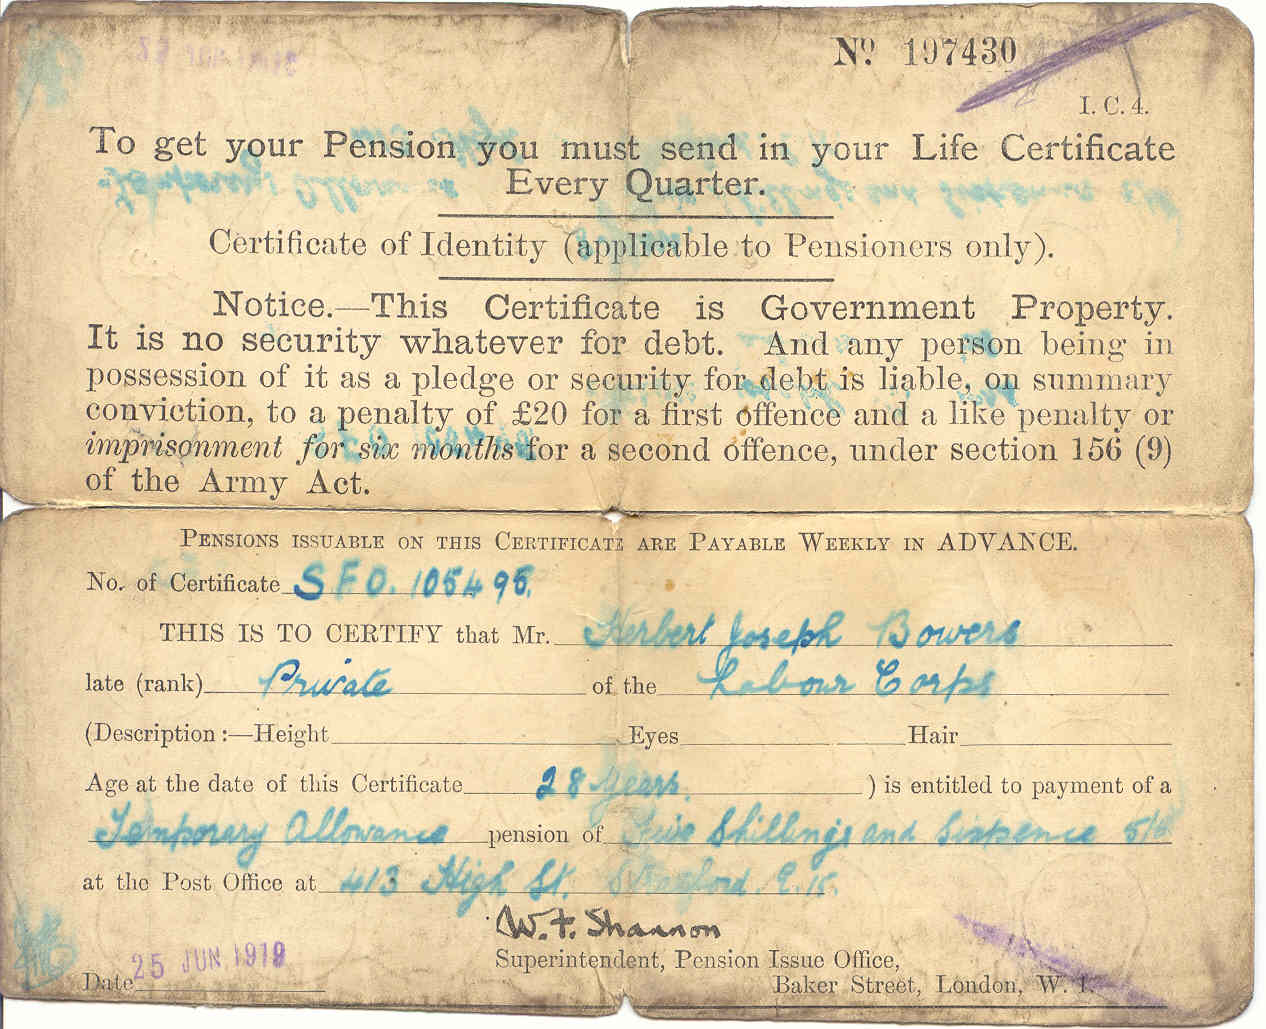 Nº 197430
I. C. 4.
To get your Pension you must send in your Life Certificate
Every Quarter.
Certificate of Identity (applicable to Pensioners only).
Notice.—This Certificate is Government Property.
It is no security whatever for debt. And any person being in
possession of it as a pledge or security for debt is liable, on summary
conviction, to a penalty of £20 for a first offence and a like penalty or
imprisonment for six months for a second offence, under section 156 (9)
of the Army Act.
PENSIONS ISSUABLE ON THIS CERTIFICATE ARE PAYABLE WEEKLY IN ADVANCE.
No. of Certificate SFO. 105495.
THIS IS TO CERTIFY that Mr. Herbert Joseph Bowers
late (rank) Private of the Labour Corps
(Description :—Height Eyes Hair
Age at the date of this Certificate 28 Years. ) is entitled to payment of a
Temporary Allowance pension of Five Shillings and Sixpence 5/6
at the Post Office at 413 High St. E.15.
W. F. Shannon
Superintendent, Pension Issue Office,
Baker Street, London, W. 1.
Date 25 JUN 1919